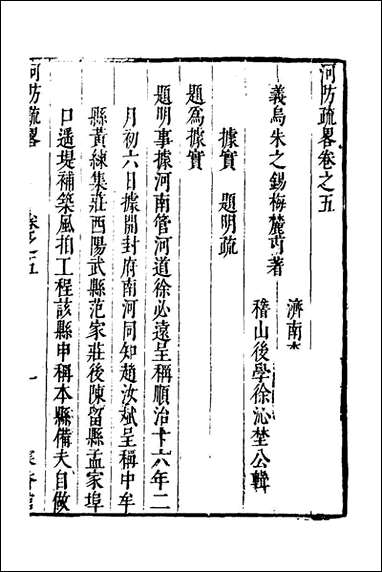 河防疏畧卷之五
濟南
義烏朱之錫梅麓甫著　稽山後學徐沁埜公輯
據實　題明疏
題爲據實
題明事據河南管河道徐必遠呈稱順治十六年二
月初六日據開封府南河同知趙汝斌呈稱中牟
縣黃練集莊西陽武縣范家莊後陳留縣孟家埠
口遥堤補築風拍工程該縣申稱本縣備夫自做
河防疏畧　卷之五　一